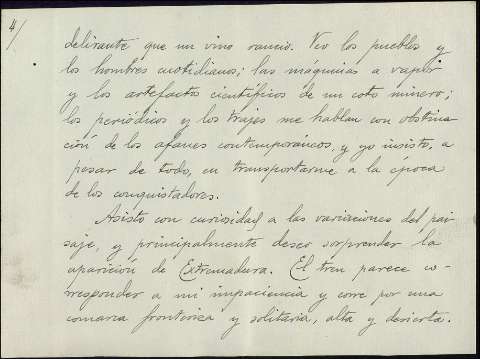 4/
delirante que un vino rancio. Veo los pueblos y
los hombres cuotidianos; las máquinas a vapor
y los artefactos científicos de un coto minero;
los periódicos y los trajes me hablan con obstina-
ción de los afanes contemporáneos, y yo insisto, a
pesar de todo, en transportarme a la época
de los conquistadores.
Asisto con curiosidad a las variaciones del pai-
saje, y principalmente deseo sorprender la
aparición de Extremadura. El tren parece co-
rresponder a mi impaciencia y corre por una
comarca fronteriza y solitaria, alta y desierta.